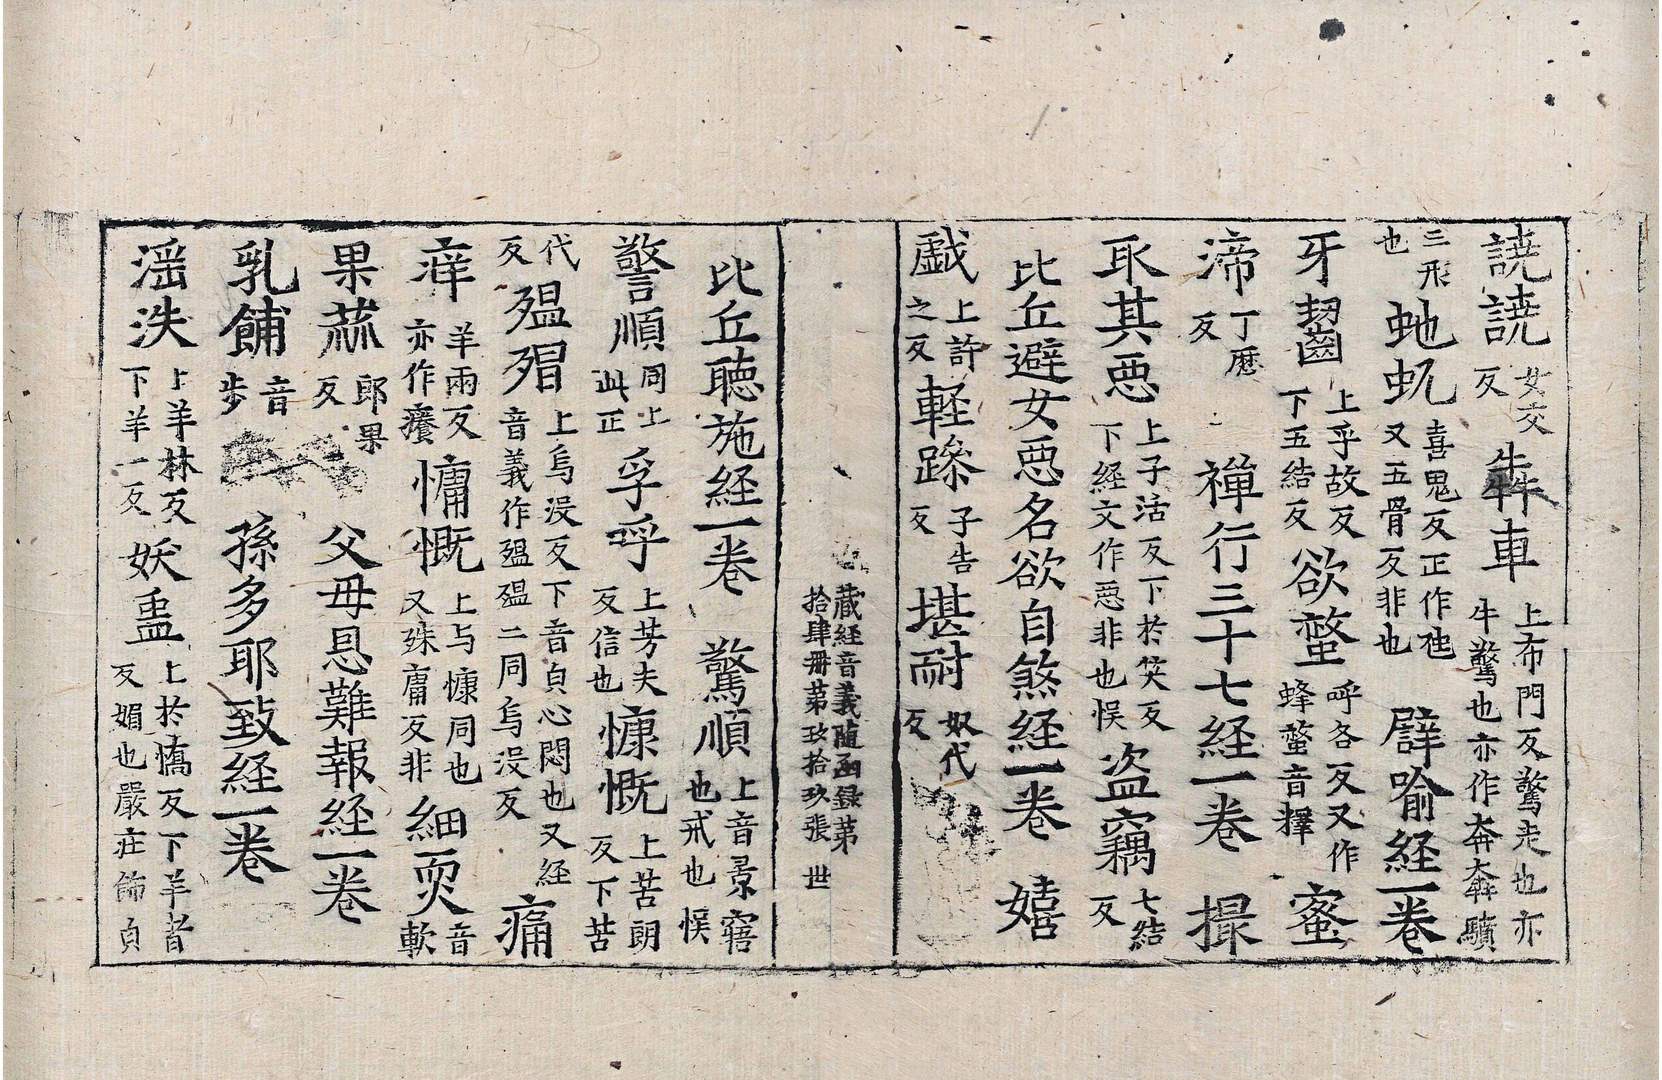 譊譊女交反犇車上布門反驚走也亦牛驚也亦作奔犇驞
三形也虵虺喜鬼反正作虺又五骨反非也譬喻經一卷
牙齧上乎故反下五結反欲螫呼各反又作蜂螫音釋蜜
渧丁歷反禪行三十七經一卷撮
取其惡上子活反下於笑反下經文作惡非也悮盜竊七結反
比丘避女惡名欲自煞經一卷嬉
戯上許之反輕躁子告反堪耐奴代反
藏經音義隨函錄第拾肆冊第玖拾玖張世
比丘聽施經一卷驚順上音景寤也戒也悮
警順同上此正孚呼上芳夫反信也慷慨上苦朗反下苦
代反殟殟上烏沒反下音㒵心悶也又經音義作殟殟二同烏沒反痛
痒羊兩反亦作癢慵慨上与慷同也又殊庸反非細耎音軟
果蓏郎果反父母恩難報經一卷
乳餔音步孫多耶致經一卷
滛泆上羊林反下羊一反妖蠱上於憍反下羊者反媚也嚴庄飾㒵